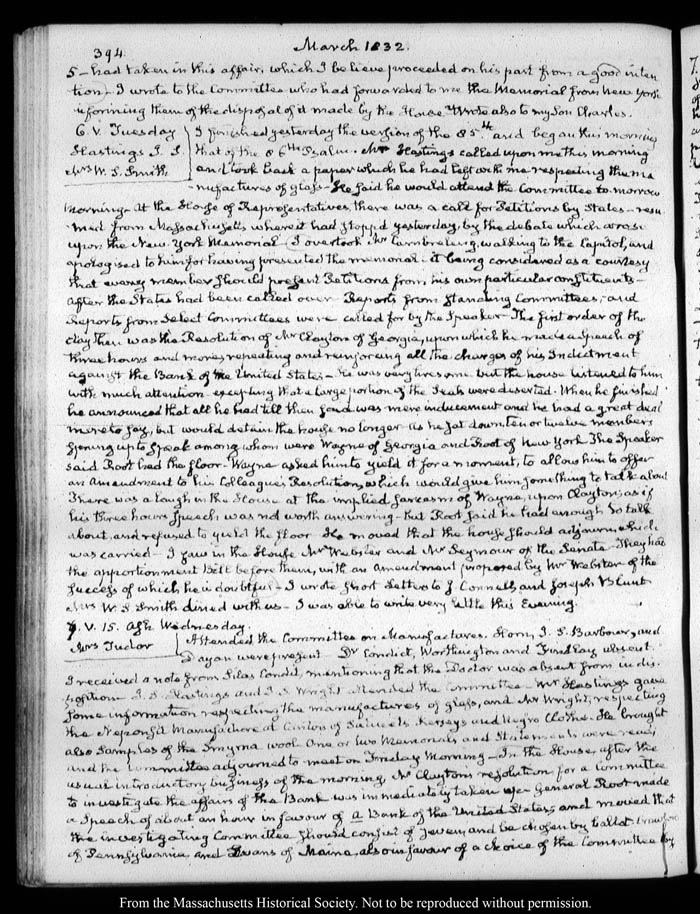 394
March 1832.
5 - had taken in this affair, which I believe proceeded on his part from a good inten
tion - I wrote to the Committee who had forwarded to me the Memorial from New York
informing them of the disposal of it made by the House. Wrote also to my Son Charles.
6. V. Tuesday
Hastings
Mrs W. S. Smith
I finished yesterday the version of the 85th and began this morning
that of the 86th Psalm. Mr Hastings called upon me this morning
and took back a paper which he had left with me respecting the ma
nufactures of glass - He said he would attend the Committee to-morrow
morning - At the House of Representatives, there was a call for Petitions by States - resu
med from Massachusetts where it had stopp'd yesterday, by the debate which arose
upon the New-York Memorial - I overtook Mr Cambreleng, walking to the Capitol, and
apologised to him for having presented the memorial - it being considered as a courtesy
that every member should present Petitions from his own particular constituents -
After the States had been called over Reports from Standing Committees, and
Reports from Select Committees were called for by the Speaker - The first order of the
day then was the Resolution of Mr Clayton of Georgia, upon which he made a Speech of
three hours and more, repeating and reinforcing all the charges of his Indictment
against the Bank of the United States - He was very tiresome but the house listened to him
with much attention excepting that a large portion of the Seats were deserted. When he finished
he announced that all he had till then said was mere inducement and he had a great deal
more to say, but would detain the house no longer. As he sat down ten or twelve members
sprung up to speak among whom were Wayne of Georgia and Root of New York. The Speaker
said Root had the floor - Wayne asked him to yield it for a moment, to allow him to offer
an Amendment to his Colleague's Resolution, which would give him something to talk about
There was a laugh in the House at the implied sarcasm of Wayne, upon Clayton, as if
his three hours Speech, was not worth answering - but Root said he had enough to talk
about and refused to yield the floor. He moved that the house should adjourn, which
was carried - I saw in the House Mr Webster and Mr Seymour of the Senate - They had
the apportionment Bill before them, with an Amendment proposed by Mr Webster of the
success of which he is doubtful - I wrote short Letters to J Connell, and Joseph Blunt
Mrs W. S. Smith dined with us - I was able to write very little this Evening.
7. V. 15. Ash Wednesday.
Mrs Tudor
Attended the Committee on Manufactures. Horn, J. S. Barbour, and
Dayan were present - Dr Condict, Worthington and Findlay absent.
I received a note from Silas Condit, mentioning that the Doctor was absent from indis
position - Hastings and Wright attended the Committee - Mr Hastings gave
some information respecting the manufactures of glass, and Mr Wright, respecting
the Manufacture of Kerseys and Negro Cloths. He brought
also samples of the Smyrna wool. One or two Memorials and Statements were read,
and the Committee adjourned to meet on Friday Morning - In the House, after the
usual introductory business of the morning, Mr Clayton's resolution for a Committee
to investigate the affairs of the Bank was immediately taken up - General Root made
a Speech of about an hour in favour of a Bank of the United States, and moved that
the investigating Committee should consist of seven, and be chosen by ballot - Crawford
of Pennsylvania and Evans of Maine, also in favour of a choice of the Committee by
From the Massachusetts Historical Society. Not to be reproduced without permission.